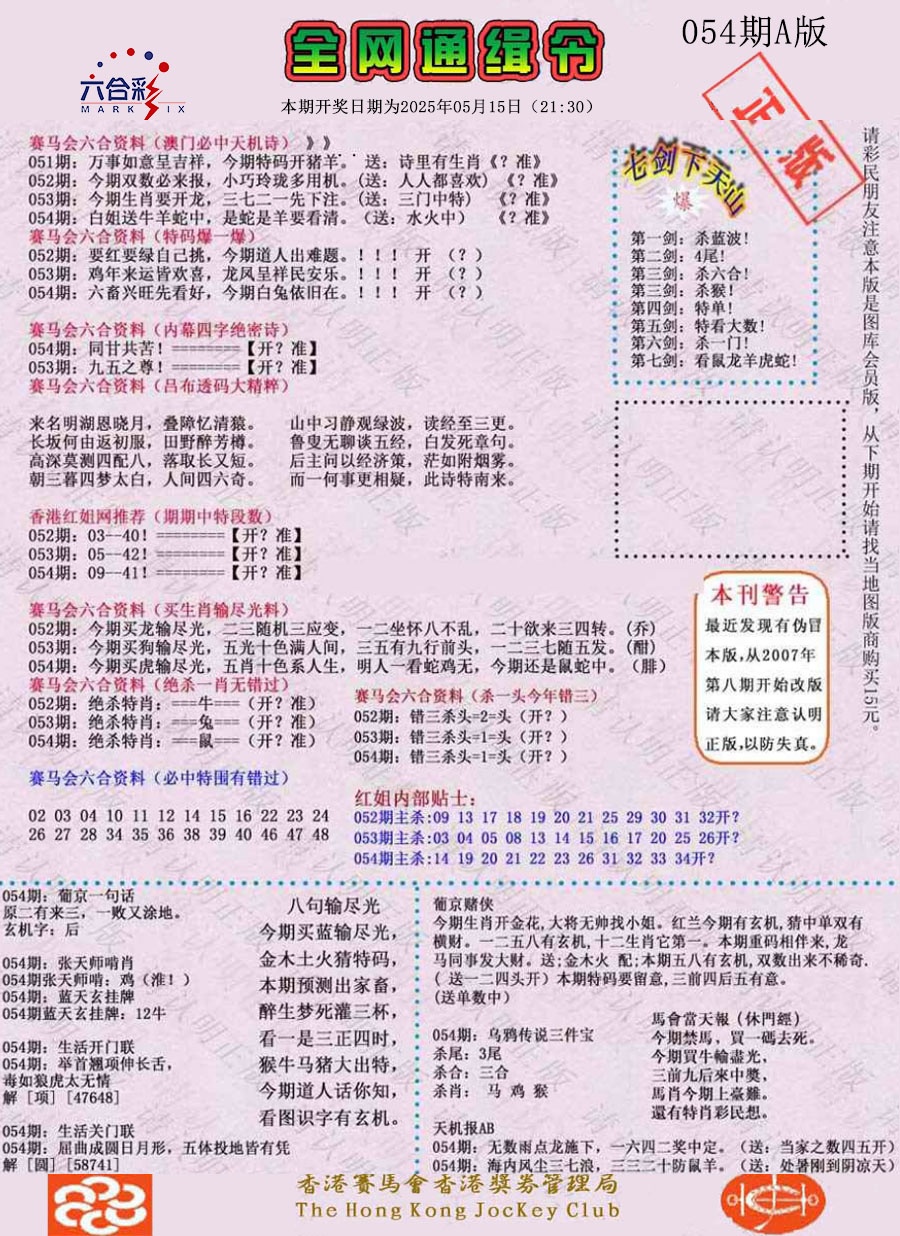 全网通缉令
054期A版
六合彩
MARK SIX
本期开奖日期为2025年05月15日（21:30）
正版
赛马会六合资料（澳门必中天机诗）》》
051期：万事如意呈吉祥，今期特码开猪羊．．送：诗里有生肖《？准》
052期：今期双数必来报，小巧玲珑多用机。(送：人人都喜欢）《？准》
053期：今期生肖要开龙，三七二一先下注。(送：三门中特）《？准》
054期：白姐送牛羊蛇中，是蛇是羊要看清。（送：水火中）《？准》
赛马会六合资料（特码爆一爆）
052期：要红要绿自己挑，今期道人出难题。！！！ 开 （？）
053期：鸡年来运皆欢喜，龙凤呈祥民安乐。！！！ 开 （？）
054期：六畜兴旺先看好，今期白兔依旧在。！！！ 开 （？）
赛马会六合资料（内幕四字绝密诗）
054期：同甘共苦！========【开？准】
053期：九五之尊！========【开？准】
赛马会六合资料（吕布透码大精粹）
来名明湖恩晓月，叠障忆清猿。 山中习静观绿波，读经至三更。
长坂何由返初服，田野醉芳樽。 鲁叟无聊谈五经，白发死章句。
高深莫测四配八，落取长又短。 后主问以经济策，茫如附烟雾。
朝三暮四梦太白，人间四六奇。 而一何事更相疑，此诗特南来。
香港红姐网推荐（期期中特段数）
052期：03--40！========【开？准】
053期：05--42！========【开？准】
054期：09--41！========【开？准】
赛马会六合资料（买生肖输尽光料）
052期：今期买龙输尽光，二三随机三应变，一二坐怀八不乱，二十欲来三四转。(乔)
053期：今期买狗输尽光，五光十色满人间，三五有九行前头，一二三七随五发。(酣)
054期：今期买虎输尽光，五肖十色系人生，明人一看蛇鸡无，今期还是鼠蛇中。（腓）
赛马会六合资料（绝杀一肖无错过）
052期：绝杀特肖：===牛===（开？准）
053期：绝杀特肖：===兔===（开？准）
054期：绝杀特肖：===鼠===（开？准）
赛马会六合资料（杀一头今年错三）
052期：错三杀头=2=头（开？）
053期：错三杀头=1=头（开？）
054期：错三杀头=1=头（开？）
赛马会六合资料（必中特围有错过）
02 03 04 10 11 12 14 15 16 22 23 24
26 27 28 34 35 36 38 39 40 46 47 48
红姐内部贴士：
052期主杀:09 13 17 18 19 20 21 25 29 30 31 32开？
053期主杀:03 04 05 08 13 14 15 16 17 20 25 26开？
054期主杀:14 19 20 21 22 23 26 31 32 33 34开？
七剑下天山
爆
第一剑：杀蓝波！
第二剑：4尾！
第三剑：杀六合！
第三剑：杀猴！
第四剑：特单！
第五剑：特看大数！
第六剑：杀一门！
第七剑：看鼠龙羊虎蛇！
请彩民朋友注意本版是图库会员版，从下期开始请找当地图版商购买15元。
本刊警告
最近发现有伪冒
本版,从2007年
第八期开始改版
请大家注意认明
正版,以防失真。
054期：葡京一句话
原二有来三，一败又涂地。
玄机字：后
054期：张天师啃肖
054期张天师啃：鸡（淮！）
054期：蓝天玄挂牌
054期蓝天玄挂牌：12牛
054期：生活开门联
054期：举首翘项伸长舌，
毒如狼虎太无情
解［项］[47648]
054期：生活关门联
054期：屈曲成圆日月形，五体投地皆有凭
解［圆］[58741]
八句输尽光
今期买蓝输尽光，
金木土火猜特码，
本期预测出家畜，
醉生梦死灌三杯，
看一是三正四时，
猴牛马猪大出特，
今期道人话你知，
看图识字有玄机。
葡京赌侠
今期生肖开金花,大将无帅找小姐。红兰今期有玄机,猜中单双有
横财。一二五八有玄机,十二生肖它第一。本期重码相伴来,龙
马同事发大财。送;金木火 配;本期五八有玄机,双数出来不稀奇.
( 送一二四头开）本期特码要留意,三前四后五有意。
(送单数中)
054期：乌鸦传说三件宝
杀尾：3尾
杀合：三合
杀肖： 马 鸡 猴
馬會當天報（休門經）
今期禁馬，買一碼去死。
今期買牛輸盡光，
三前九后來中奬，
馬肖今期上臺難。
還有特肖彩民想。
天机报AB
054期：无数雨点龙施下，一六四二奖中定。（送：当家之数四五开）
054期：海内风尘三七浪，三三二十防鼠羊。（送：处暑刚到阴凉天）
香港賽馬會香港獎券管理局
The Hong Kong JocKey Club